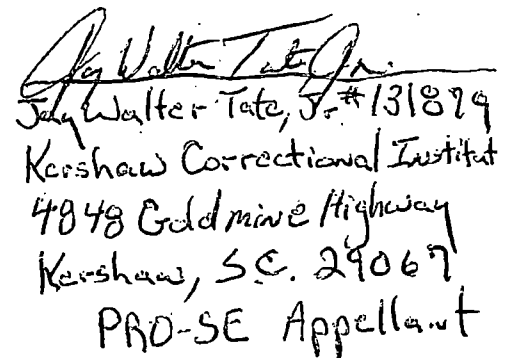 Jay Walter Tate Jr.
Jay Walter Tate, Jr. #131879
Kershaw Correctional Institut
4848 Goldmine Highway
Kershaw, S.C. 29067
PRO-SE Appellant